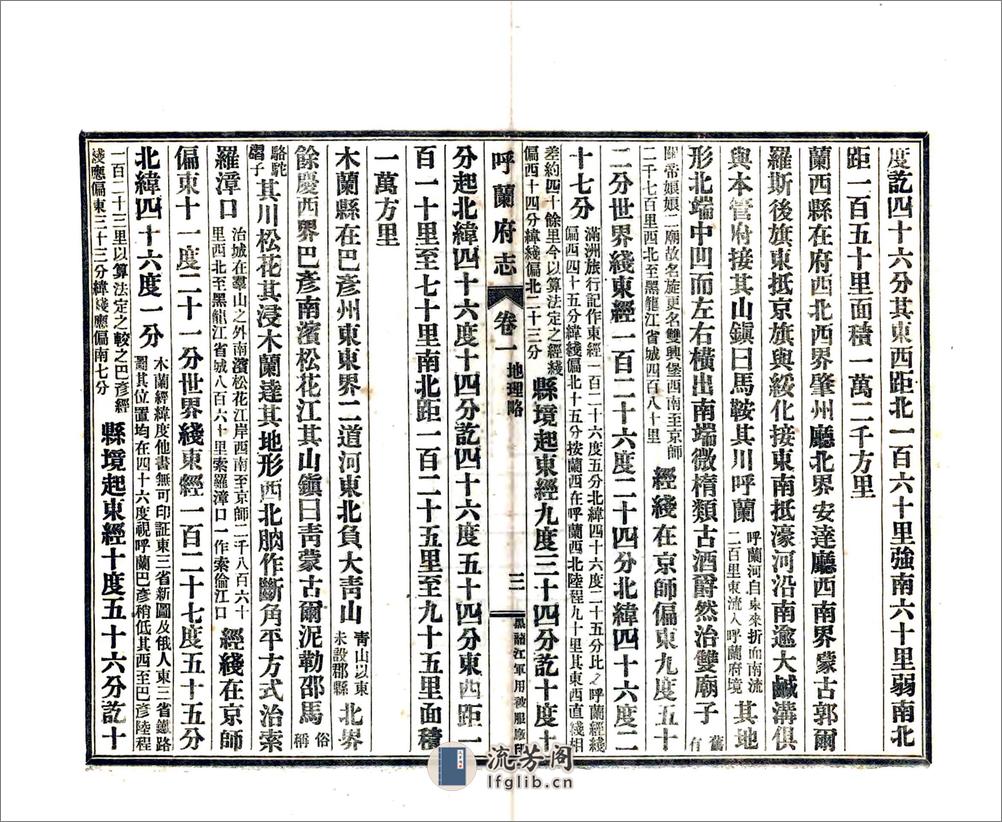 度訖四十六分其東西距北一百六十里強南六十里弱南北
距一百五十里面積一萬二千方里
蘭西縣在府西北西界肇州廳北界安達廳西南界蒙古郭爾
羅斯後旗東抵京旗與綏化接東南抵濠河沿南逾大鹹溝俱
與本管府接其山鎮曰馬鞍其川呼蘭呼蘭河自東來折而南流二百里東流入呼蘭府境其地
形北端中凹而左右橫出南端微橢類古酒爵然治雙廟子舊有
關帝娘娘二廟故名旋更名雙興堡西南至京師二千七百里西北至黑龍江省城四百八十里經綫在京師偏東九度五十
二分世界綫東經一百二十六度二十四分北緯四十六度二
十七分滿洲旅行記作東經一百二十六度五分北緯四十六度二十五分比之呼蘭經綫偏西四十五分緯綫偏北十五分按蘭西在呼蘭西北陸程九十里其東西直綫相
差約四十餘里今以算法定之經綫偏西十四分緯綫偏北二十三分縣境起東經九度三十四分訖十度十
呼蘭府志
卷一
地理略
三
黑龍江軍用被服廠印
分起北緯四十六度十四分訖四十六度五十四分東西距一
百一十里至七十里南北距一百二十五里至九十五里面積
一萬方里
木蘭縣在巴彥州東東界二道河東北負大青山青山以東未設郡縣北界
餘慶西界巴彥南濱松花江其山鎮曰青蒙古爾泥勒邵馬俗稱
駱駝𥑮子其川松花其浸木蘭達其地形西北胸作斷角平方式治索
羅漳口治城在羣山之外南濱松花江岸西南至京師二千八百六十里西北至黑龍江省城八百六十里索羅漳口一作索倫江口經綫在京師
偏東十一度二十一分世界綫東經一百二十七度五十五分
北緯四十六度一分木蘭經緯度他書無可印証東三省新圖及俄人東三省鐵路圖其位置均在四十六度視呼蘭巴彥稍低其西至巴彥陸程
一百二十三里以算法定之較之巴彥經綫應偏東三十三分緯綫應偏南七分縣境起東經十度五十六分訖十
流芳閣
lfglib.cn